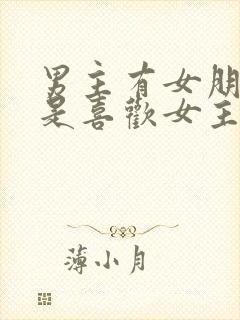 男主有女朋
是喜歡女主
薄小月